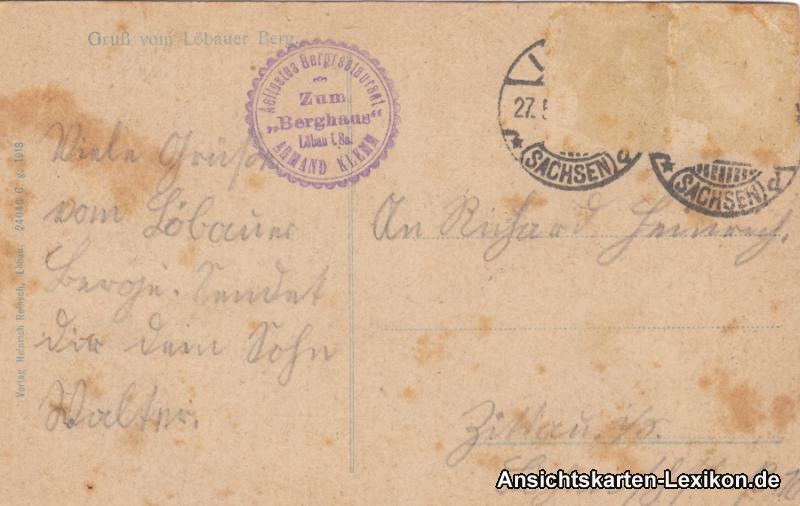 Gruß vom Löbauer Berg.
Aeltestes Bergrestaurant
Zum
„Berghaus“
Löbau i. Sa.
ARMAND KLEMM
27.5
(SACHSEN) d
(SACHSEN) d
Viele Grüße
vom Löbauer
Berge. Sendet
dir dein Sohn
Walter.
An Richard Heinrich.
Zittau. i/S.
Verlag Heinrich Reinsch, Löbau. 24040 G. g. 1918
Ansichtskarten-Lexikon.de